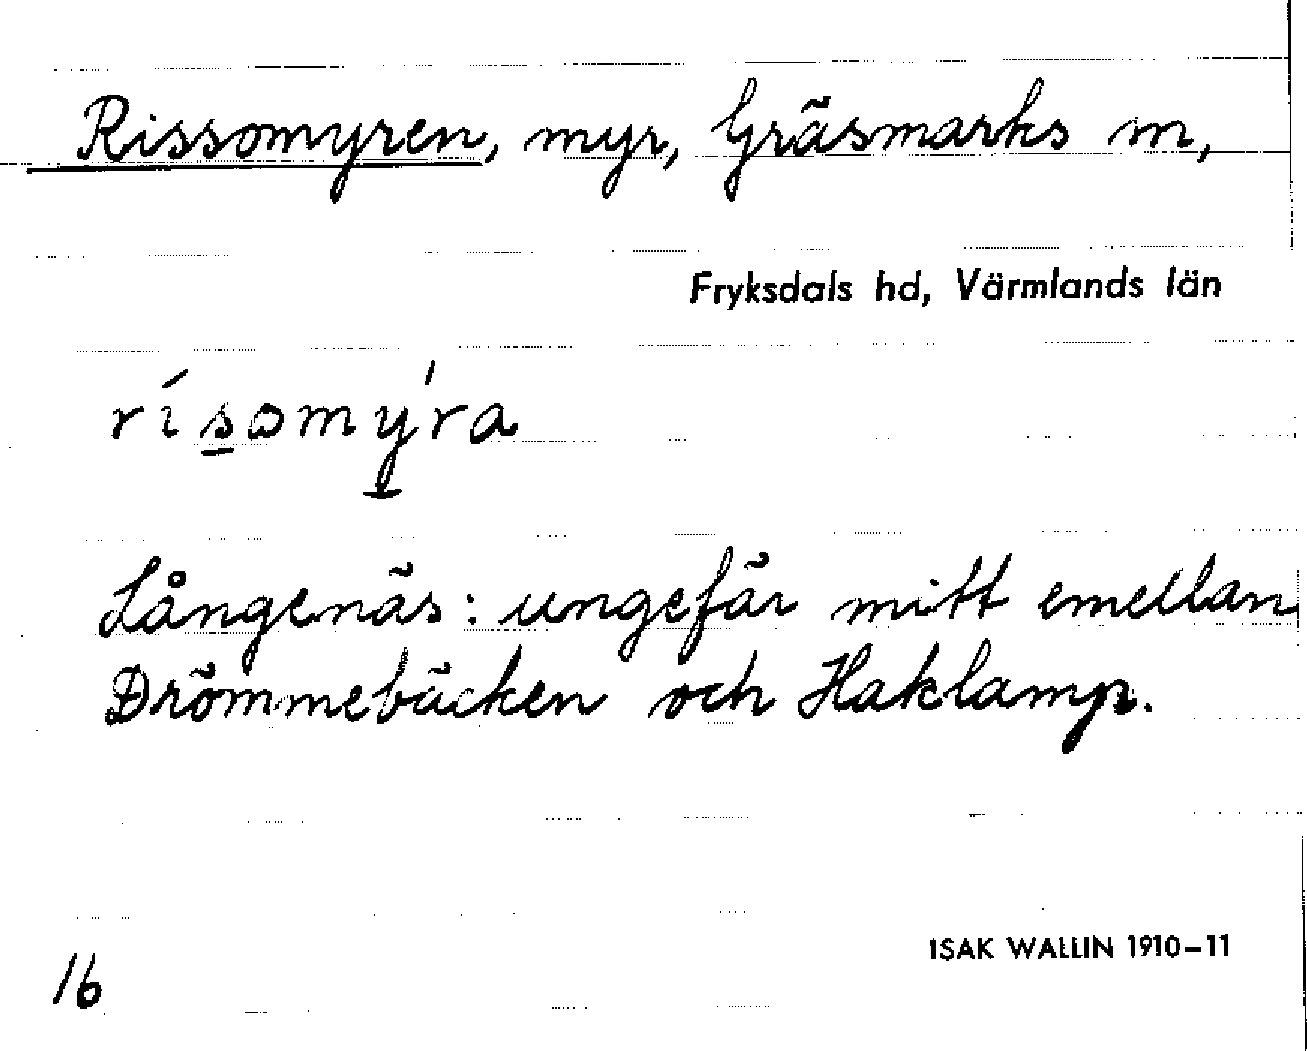 Rissomyren, myr, Gräsmarks m,
Fryksdals hd, Värmlands län
rísomýra
Långenäs: ungefär mitt emellan
Drömmebäcken och Haklamyr.
ISAK WALLIN 1910–11
16